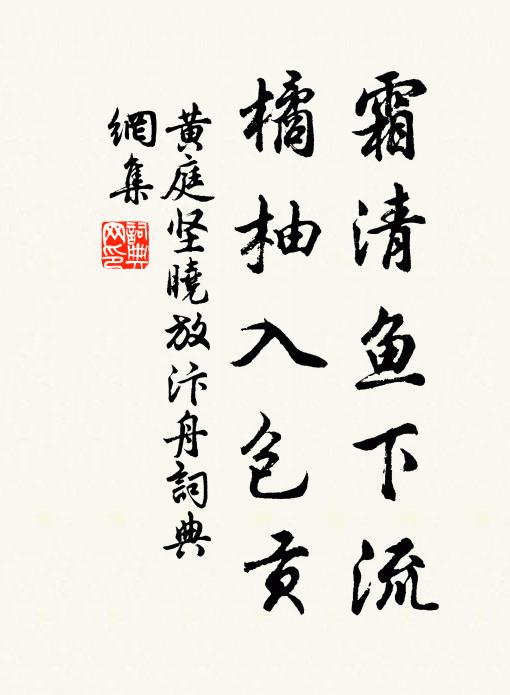 霜清鱼下流
橘柚入包贡
黄庭坚曉放汴舟詞典
網集
詞典
网印